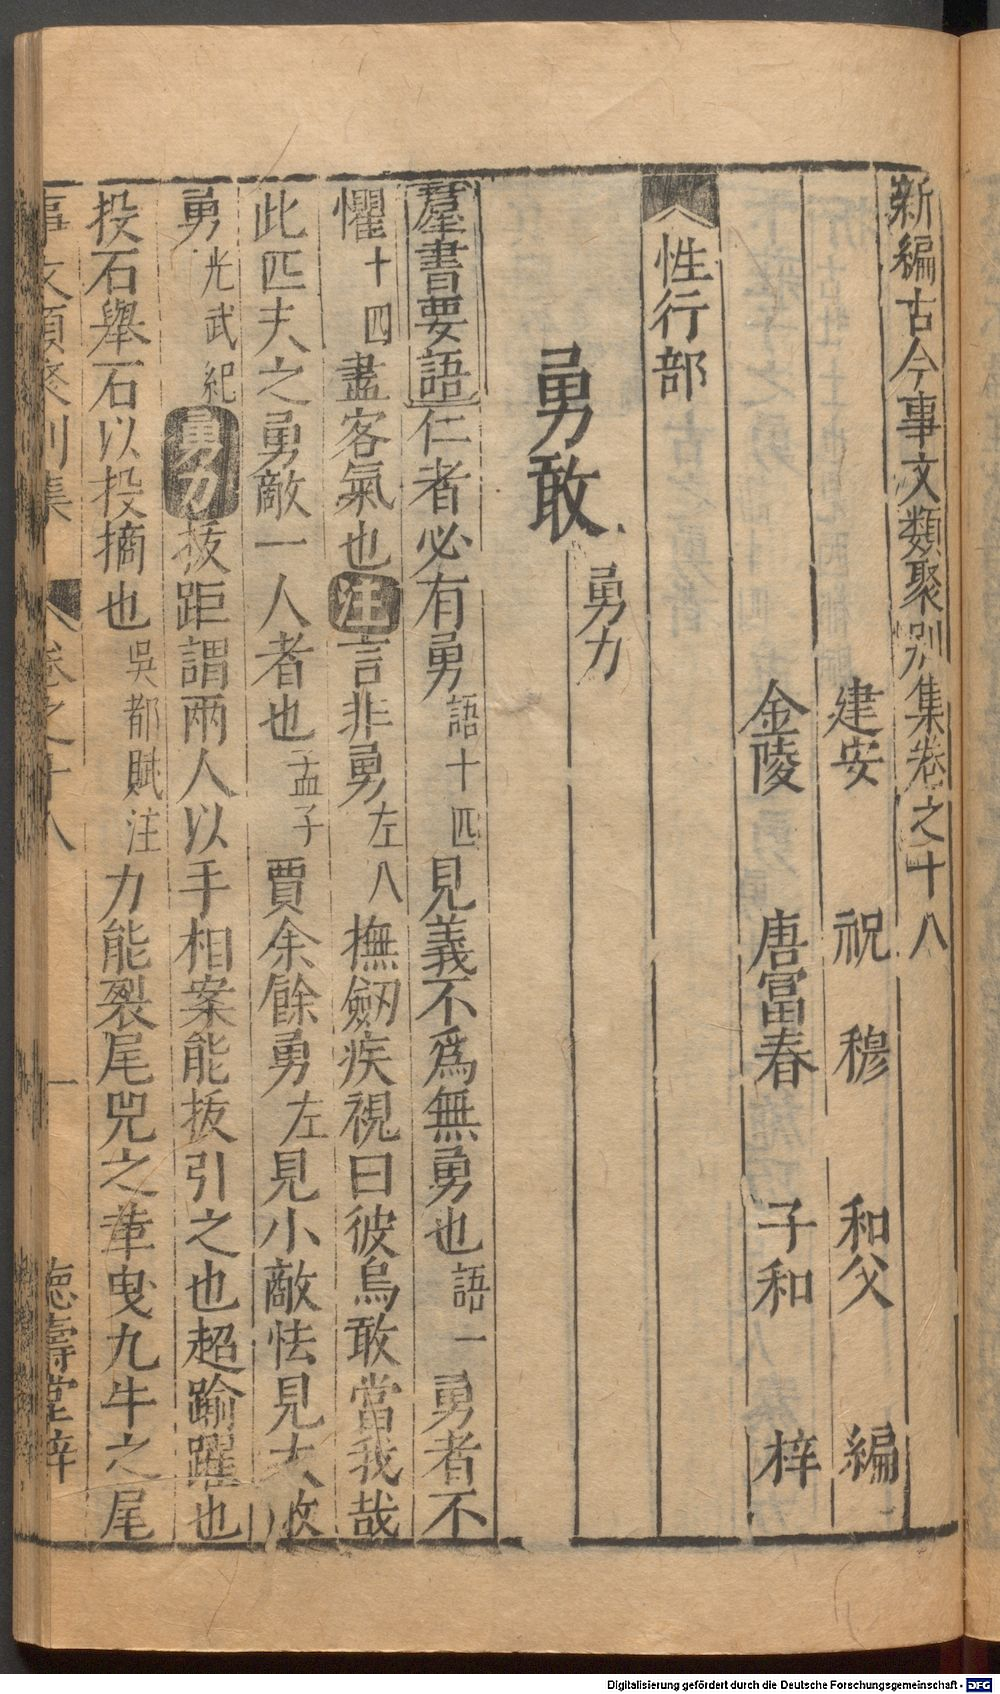 新編古今事文類聚別集卷之十八
建安 祝 穆 和父 編
金陵 唐富春 子和 梓
性行部
勇敢 勇力
羣書要語仁者必有勇語十四見義不爲無勇也語一勇者不
懼十四盡客氣也注言非勇左八撫劒疾視曰彼烏敢當我哉
此匹夫之勇敵一人者也孟子賈余餘勇左見小敵怯見大敵
勇光武紀勇力拔距謂兩人以手相案能拔引之也超踰躍也
投石舉石以投摘也吳都賦注力能裂尾兕之革曳九牛之尾
事文類聚別集 卷之十八 一 德壽堂梓
Digitalisierung gefördert durch die Deutsche Forschungsgemeinschaft - DFG